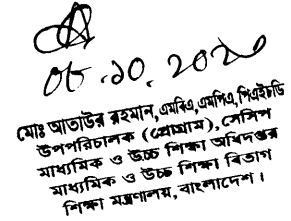 ০৮.১০.২০২০
মোঃ আতাউর রহমান, এমবিএ, এমপিএ, পিএইচডি
উপপরিচালক (প্রোগ্রাম), সেসিপ
মাধ্যমিক ও উচ্চ শিক্ষা অধিদপ্তর
মাধ্যমিক ও উচ্চ শিক্ষা বিভাগ
শিক্ষা মন্ত্রণালয়, বাংলাদেশ।